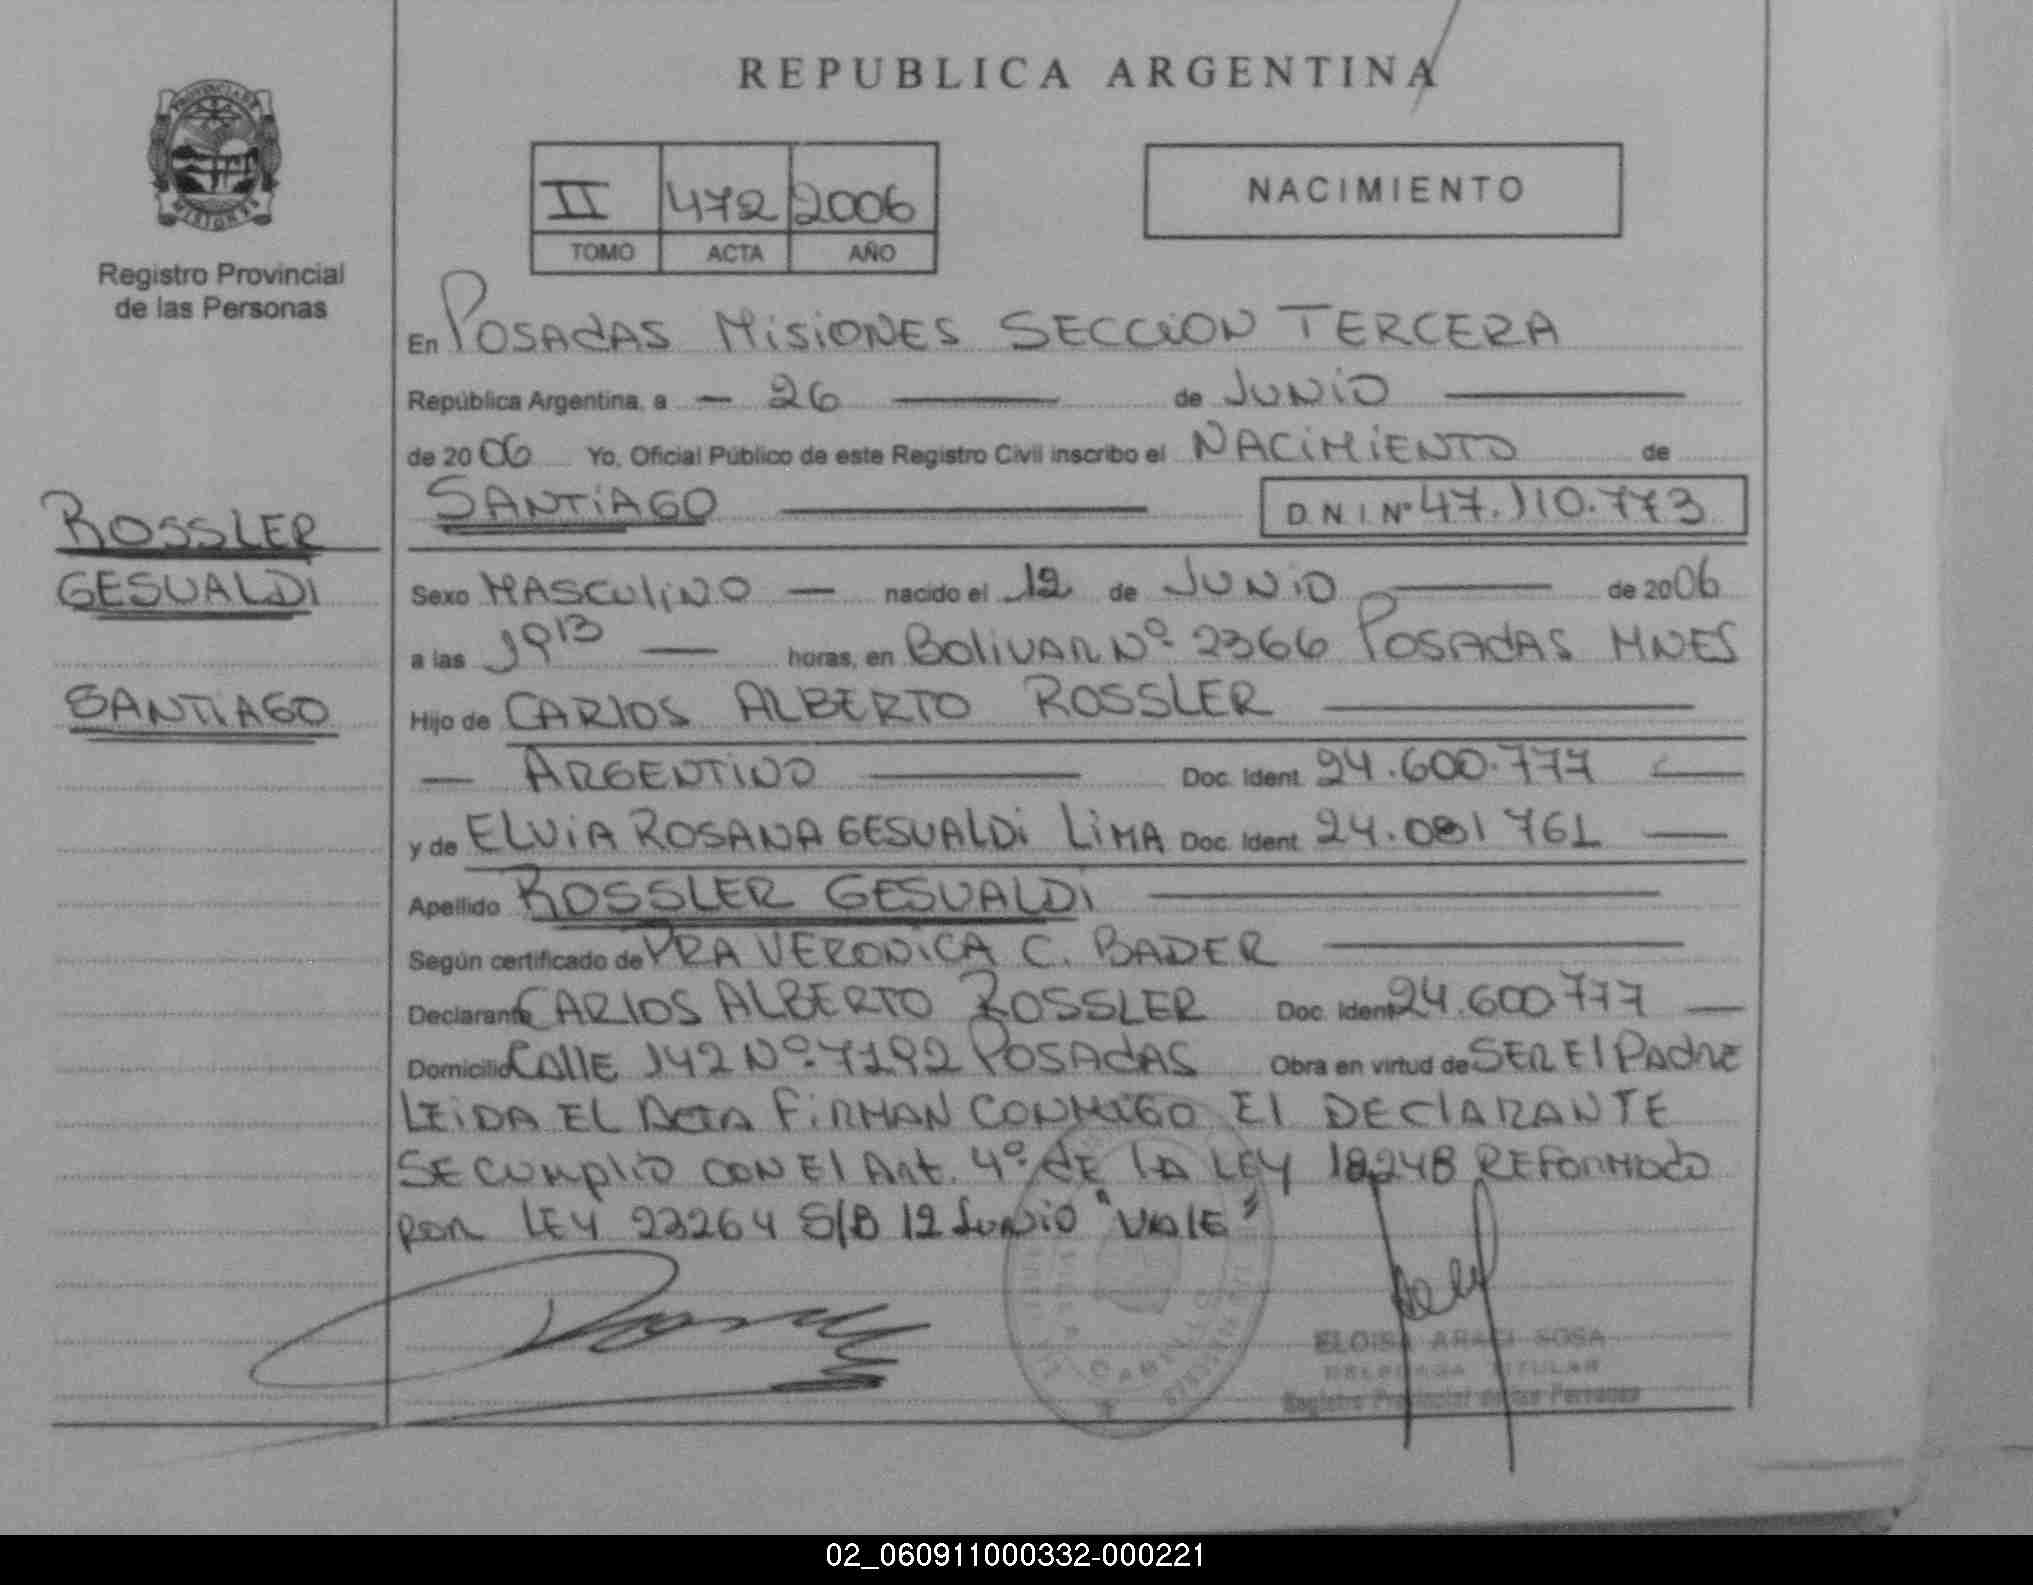 REPUBLICA ARGENTINA
PROVINCIA DE
MISIONES
Registro Provincial
de las Personas
II 472 2006
TOMO ACTA AÑO
NACIMIENTO
En POSADAS MISIONES SECCION TERCERA
República Argentina, a — 26 — de JUNIO —
de 2006 Yo, Oficial Público de este Registro Civil inscribo el NACIMIENTO de
SANTIAGO — D N I Nº 47.110.773
ROSSLER
GESUALDI
SANTIAGO
Sexo MASCULINO — nacido el 12 de JUNIO — de 2006
a las 19 13 — horas, en BOLIVAR Nº 2366 POSADAS MNES
Hijo de CARLOS ALBERTO ROSSLER —
— ARGENTINO — Doc. Ident. 24.600.777 —
y de ELVIA ROSANA GESUALDI LIMA Doc. Ident. 24.081 761 —
Apellido ROSSLER GESUALDI —
Según certificado de VERONICA C. BADER —
Declarante CARLOS ALBERTO ROSSLER Doc. Ident 24.600 777 —
Domicilio CALLE 142 Nº 7192 POSADAS Obra en virtud de SER El PADRE
LEIDA EL ACTA FIRMAN CONMIGO El DECLARANTE
SE CUMPLIO CON El Art. 4º de LA LEY 18248 REFORMADO
POR LEY 23264 S/B 12 JUNIO "VALE"
ELOISA ARACI SOSA
DELEGADA TITULAR
Registro Provincial de las Personas
02_060911000332-000221